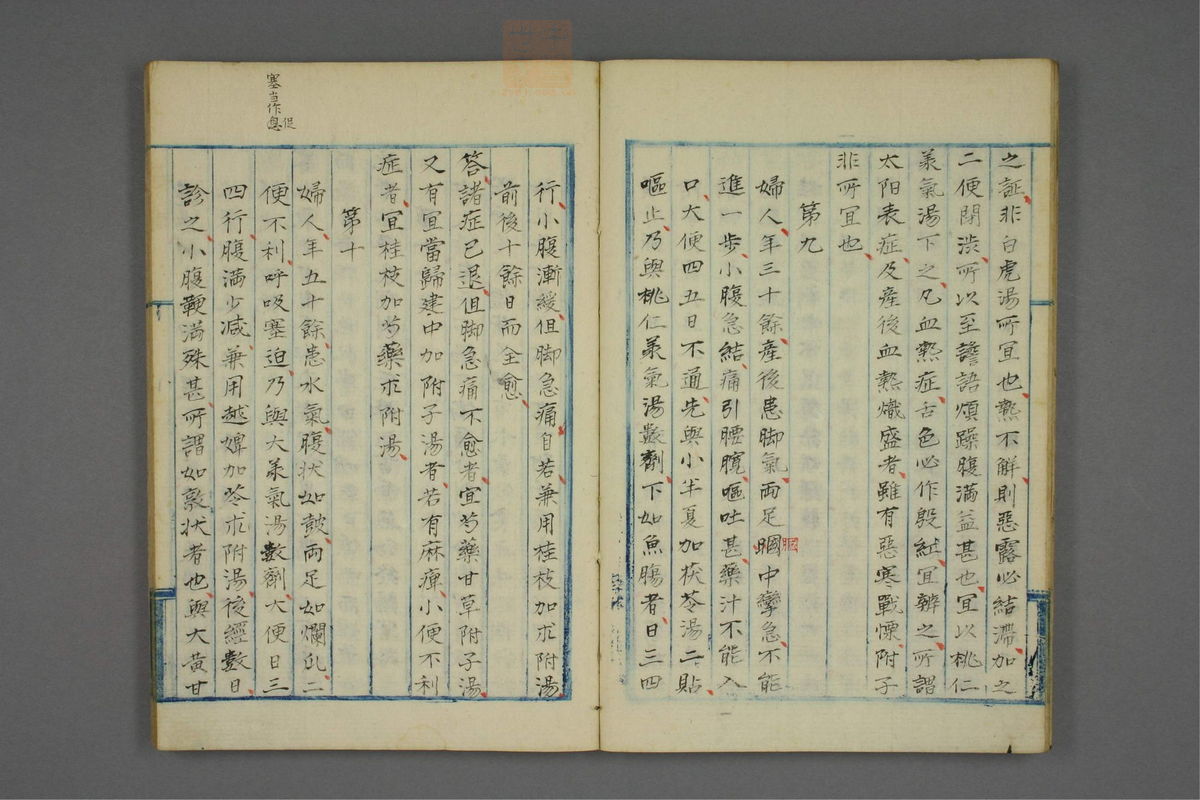 之証非白虎湯所宜也熱不解則惡露必結滯加之
二便閉澁所以至譫語煩躁腹滿益甚也宜以桃仁
美氣湯下之凡血熱症舌色必作殷紅宜辨之所謂
太阳表症及產後血熱熾盛者雖有惡寒戰慄附子
非所宜也
第九
婦人年三十餘產後患脚氣両足膕中攣急不能
進一步小腹急結痛引腰髖嘔吐甚藥汁不能入
口大便四五日不通先與小半夏加茯苓湯二貼
嘔止乃與桃仁承氣湯數劑下如魚膓者日三四
行小腹漸緩但脚急痛自若兼用桂枝加朮附湯
前後十餘日而全愈
答諸症已退但脚急痛不愈者宜芍藥甘草附子湯
又有宜當歸建中加附子湯者若有麻痺小便不利
症者宜桂枝加芍藥朮附湯
第十
婦人年五十餘患水氣腹状如皷両足如爛瓜二
便不利呼吸塞迫乃與大承氣湯數劑大便日三
四行腹満少减兼用越婢加苓朮附湯後經數日
診之小腹鞕満殊甚所謂如敦状者也與大黄甘
塞当作息
促